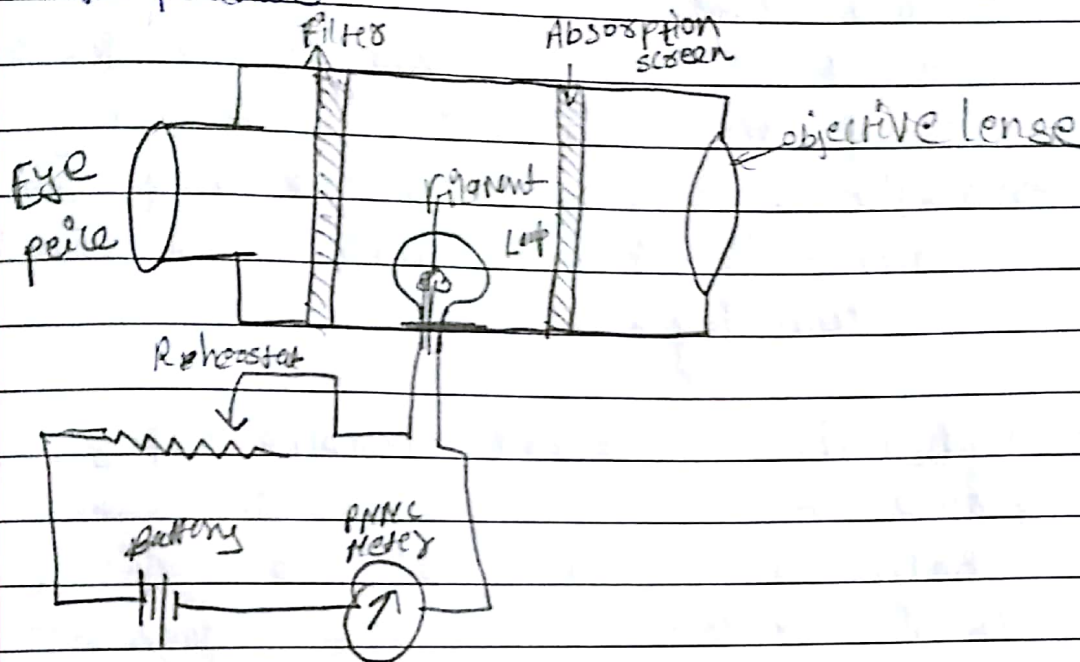 Filter
Absorption
screen
objective lense
Eye
peice
Filament
Battery
PMMC
Meter